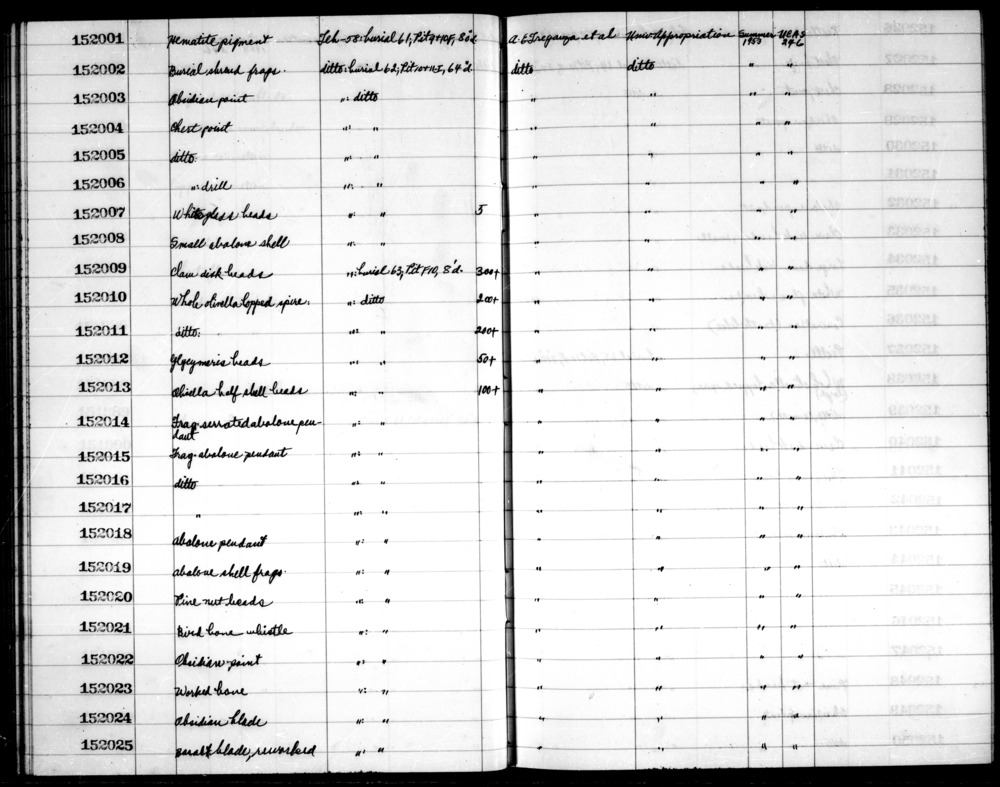 152001 Hematite pigment Teh-58: burial 61, Pit 9+10F, 80"d. A. E Treganza et al Univ Appropriation Summer 1953 UCAS 246
152002 Burial shroud frags. ditto: burial 62, Pit 10+11-I, 64"d. ditto ditto " "
152003 Obsidian point ": ditto " " " "
152004 Chert point ": " " " " "
152005 ditto: ": " " " " "
152006 ": drill ": " " " " "
152007 White glass beads ": " 5 " " " "
152008 Small abalone shell ": " " " " "
152009 Clam disk beads ": burial 63, Pit F10, 8'd. 300+ " " " "
152010 Whole olivella lopped spire: ": ditto 200+ " " " "
152011 ditto: ": " 200+ " " " "
152012 Glycymeris beads ": " 50+ " " " "
152013 Olivella half shell beads ": " 100+ " " " "
152014 Frag. serrated abalone pen-
dant ": " " " " "
152015 Frag. abalone pendant ": " " " " "
152016 ditto ": " " " " "
152017 " ": " " " " "
152018 abalone pendant ": " " " " "
152019 abalone shell frags. ": " " " " "
152020 Pine nut beads ": " " " " "
152021 Bird bone whistle ": " " " " "
152022 Obsidian point ": " " " " "
152023 Worked bone ": " " " " "
152024 Obsidian blade ": " " " " "
152025 Basalt blade, reworked ": " " " " "